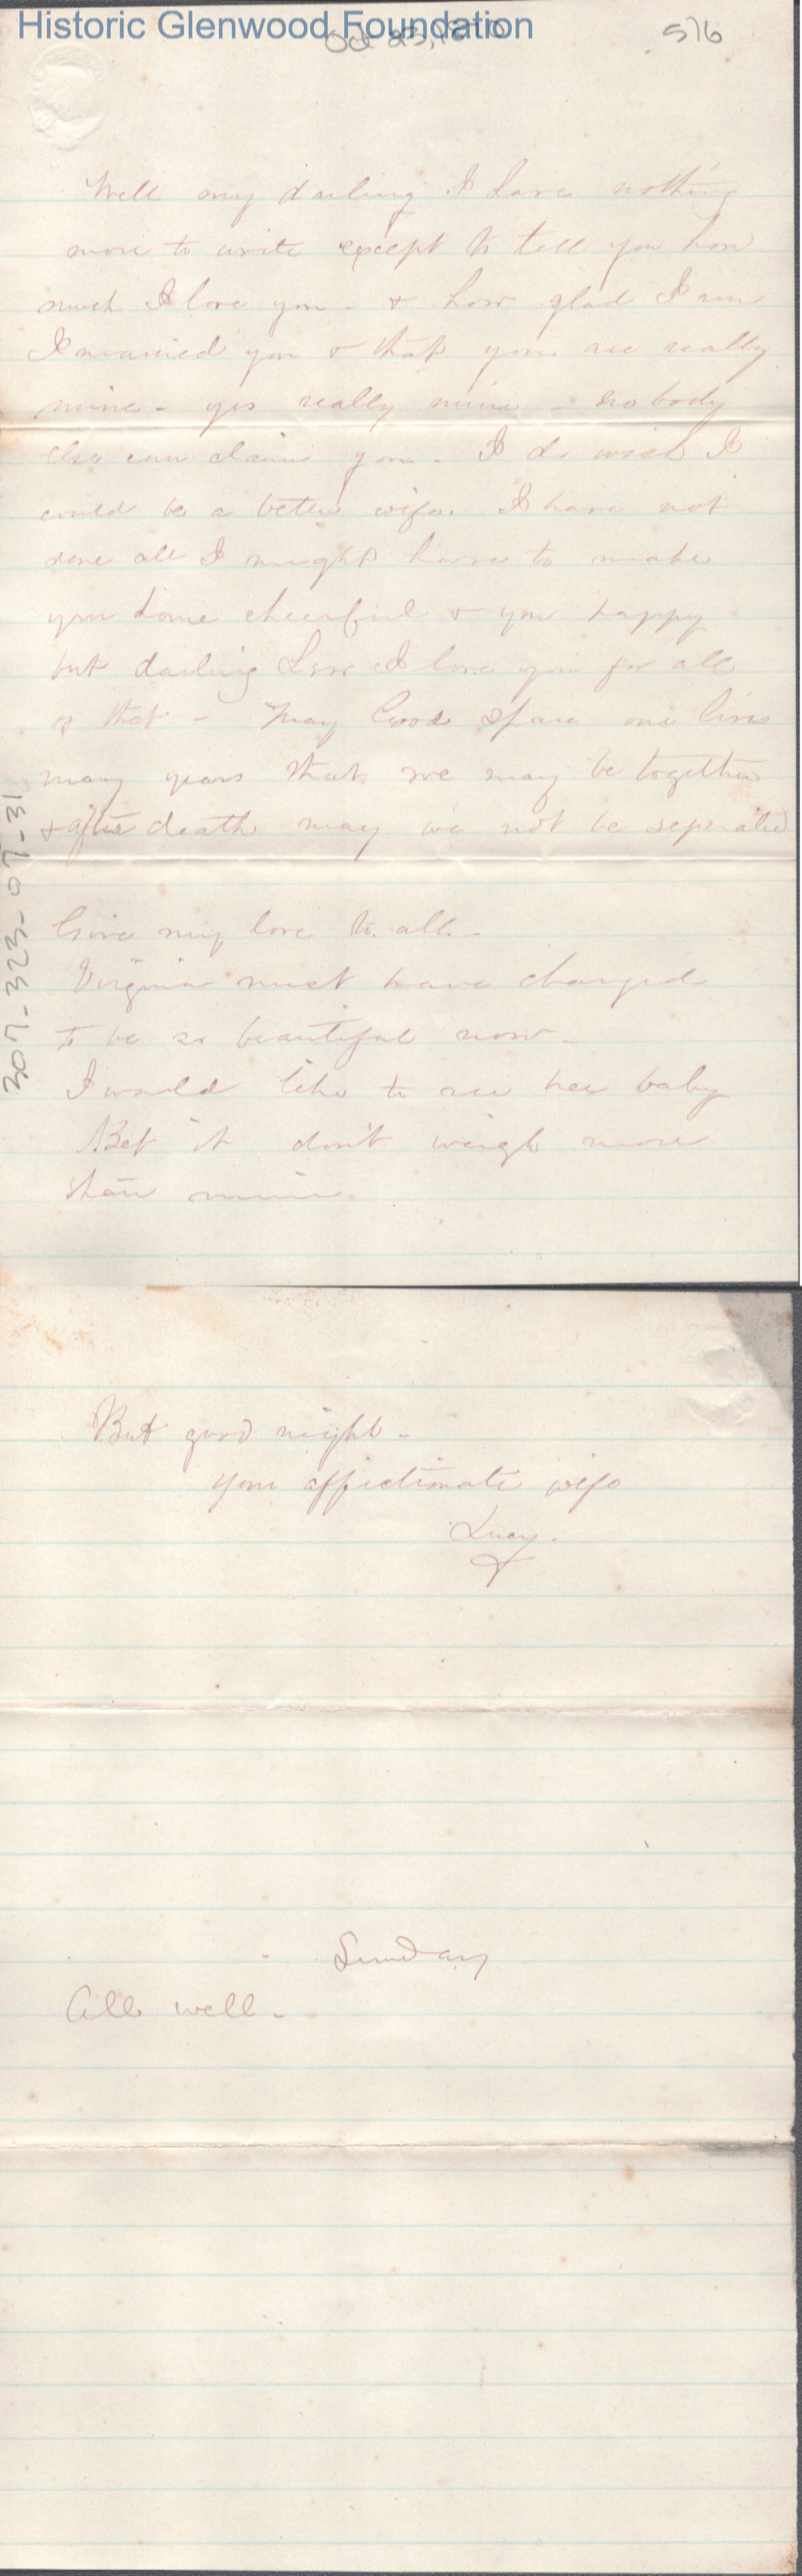 Historic Glenwood Foundation
Oct 23, 1870
576
Well my darling I have nothing
more to write except to tell you how
much I love you - & how glad I am
I married you & that you are really
mine - yes really mine - no body
else can claim you. I do wish I
could be a better wife. I have not
done all I might have to make
your home cheerful & you happy
but darling I love you for all
of that - May God spare our lives
many years that we may be together
& after death may we not be seperated
307-323-07-31
Give my love to all -
Virginia must have changed
to be so beautiful now -
I would like to see her baby
Bet it don't weigh more
than mine.
But good night -
Your affectionate wife
Lucy.
Sunday
All well -